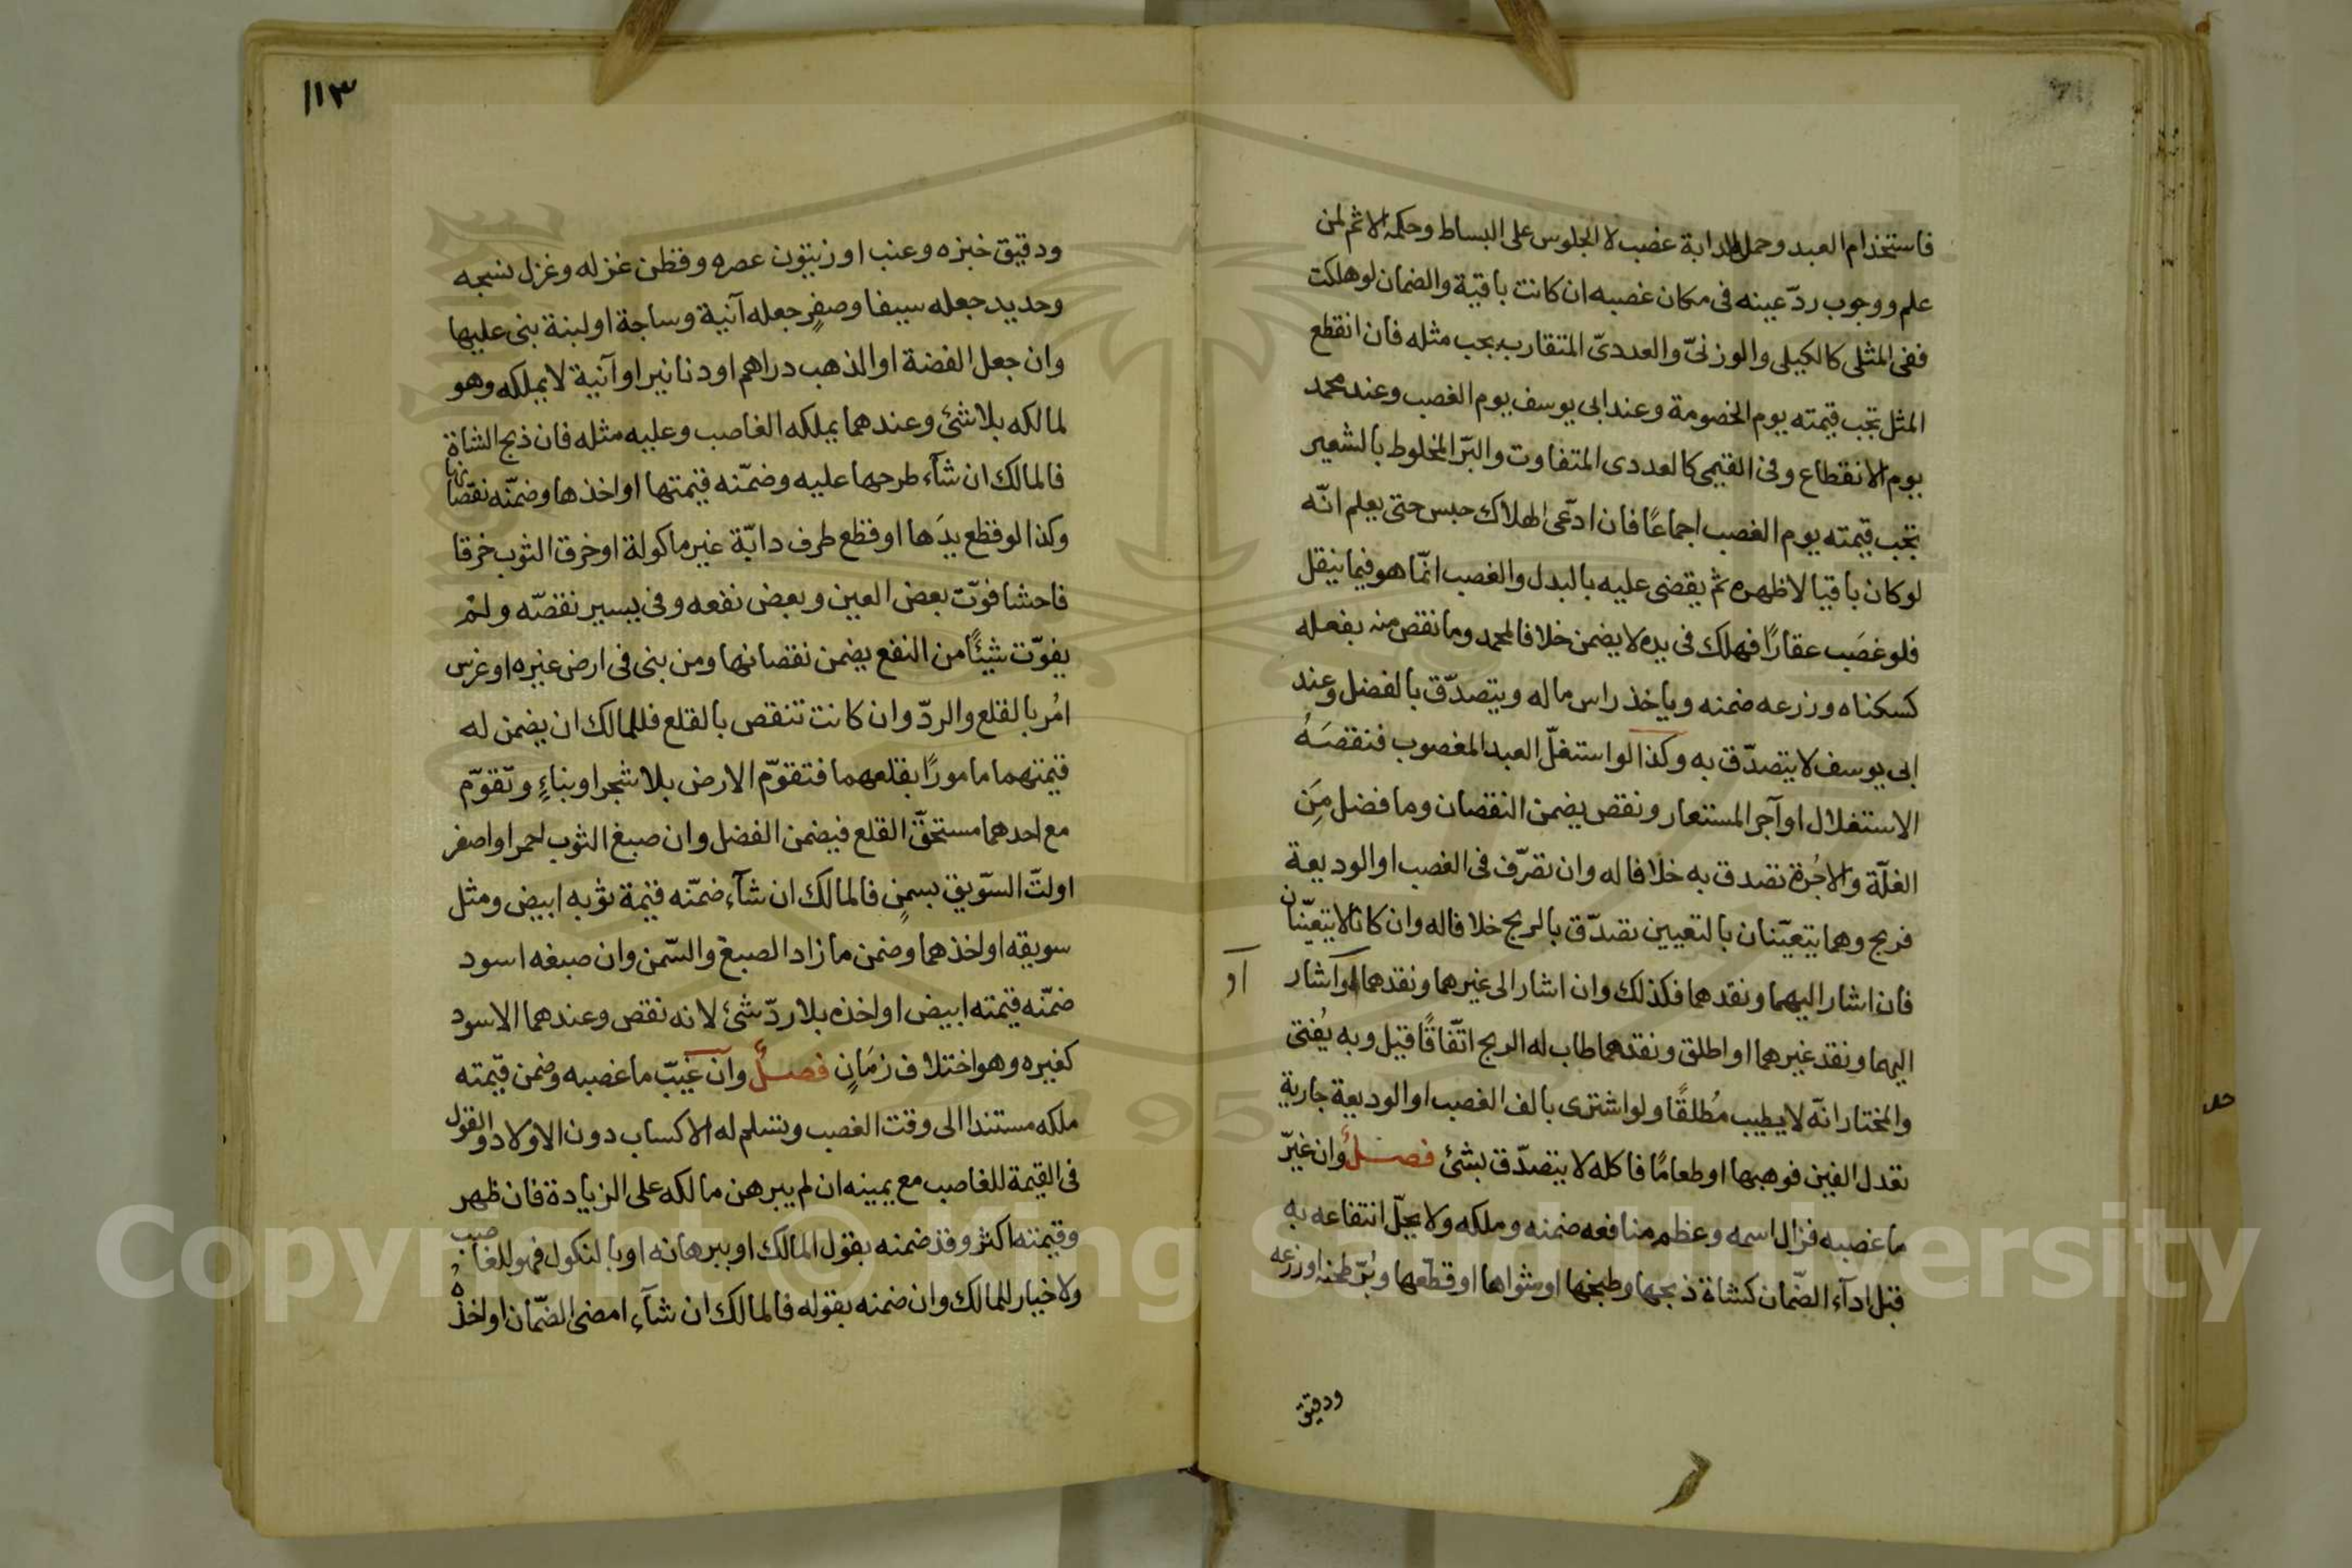 فاستخدام العبد وحمل الدابة غصب لا الجلوس على البساط وحكمه الاثم لمن
علم ووجوب ردّ عينه فى مكان غصبه ان كانت باقية والضمان لو هلكت
ففى المثلى كالكيلى والوزنىّ والعددىّ المتقارب يجب مثله فان انقطع
المثل تجب قيمته يوم الخصومة وعند ابى يوسف يوم الغصب وعند محمد
يوم الانقطاع وفى القيمى كالعددى المتفاوت والبرّ المخلوط بالشعير
تجب قيمته يوم الغصب اجماعًا فان ادّعى الهلاك حبس حتى يعلم انّه
لو كان باقيا لاظهره ثم يقضى عليه بالبدل والغصب انّما هو فيما ينقل
فلو غصَب عقارًا فهلك فى يده لا يضمن خلافا لمحمد وما نقص منه بفعله
كسكناه وزرعه ضمنه وياخذ راس ماله ويتصدّق بالفضل وعند
ابى يوسف لا يتصدّق به وكذا لو استغلّ العبد المغصوب فنقصَهُ
الاستغلال او آجر المستعار ونقص يضمن النقصان وما فضل مِنَ
الغلّة والاجُرة تصدق به خلافا له وان تصرّف فى الغصب او الوديعة
فربح وهما يتعيّنان بالتعيين تصدّق بالربح خلافا له وان كانا لا يتعيّنان
فان اشار اليهما ونقدهما فكذلك وان اشار الى غيرهما ونقدهما او اشار
او
اليهما ونقد غيرهما او اطلق ونقدهما طاب له الربح اتّفاقًا قيل وبه يُفتى
والمختار انّه لا يطيب مُطلقًا ولو اشترى بالف الغصب او الوديعة جارية
تعدل الفين فوهبها او طعامًا فاكله لا يتصدّق بشئ فصلٌ وان غيّر
ما غصبه فزال اسمه وعظم منافعه ضمنه وملكه ولا يحلّ انتفاعه به
قبل ادآء الضّمان كشاة ذبحها وطبخها او شواها او قطّعها وبُرّ طحنه او زرعه
ودقيق
١١٣
ودقيق خبزه وعنب او زيتون عصره وقطن غزله وغزل نسجه
وحديد جعله سيفا وصفرٍ جعله آنية وساجة او لبنة بنى عليها
وان جعل الفضة او الذهب دراهم او دنانير او آنية لا يملكه وهو
لمالكه بلا شئ وعندهما يملكه الغاصب وعليه مثله فان ذبح الشاة
فالمالك ان شآء طرحها عليه وضمّنه قيمتها او اخذها وضمّنه نقصانها
وكذا لو قطع يدَها او قطع طرف دابّة غير ماكولة او خرق الثوب خرقا
فاحشا فوّت بعض العين وبعض نفعه وفى يسير نقصّه ولم
يفوّت شيئًا من النفع يضمن نقصانها ومن بنى فى ارض غيره او غرس
امُر بالقلع والردّ وان كانت تنقص بالقلع فللمالك ان يضمن له
قيمتهما مامورًا بقلعهما فتقوّم الارض بلا شجر او بناءٍ وتقوّم
مع احدهما مستحقّ القلع فيضمن الفضل وان صبغ الثوب احمر او اصفر
او لتّ السّويق بسمنٍ فالمالك ان شآء ضمّنه قيمة ثوبه ابيض ومثل
سويقه او اخذهما وضمن ما زاد الصبغ والسّمن وان صبغه اسود
ضمّنه قيمته ابيض او اخذه بلا ردّ شئ لانه نقص وعندهما الاسود
كغيره وهو اختلاف زمَانٍ فصلٌ وان غيّب ما غصبه وضمن قيّمته
ملكه مستندا الى وقت الغصب وتسلم له الاكساب دون الاولاد والقول
فى القيمة للغاصب مع يمينه ان لم يبرهن مالكه على الزيادة فان ظهر
وقيمته اكثر وقد ضمنه بقول المالك او ببرهانه او بالنكول فهو للغاصب
ولا خيار للمالك وان ضمنه بقوله فالمالك ان شآء امضى الضّمان او اخذه
Copyright © King Saud University